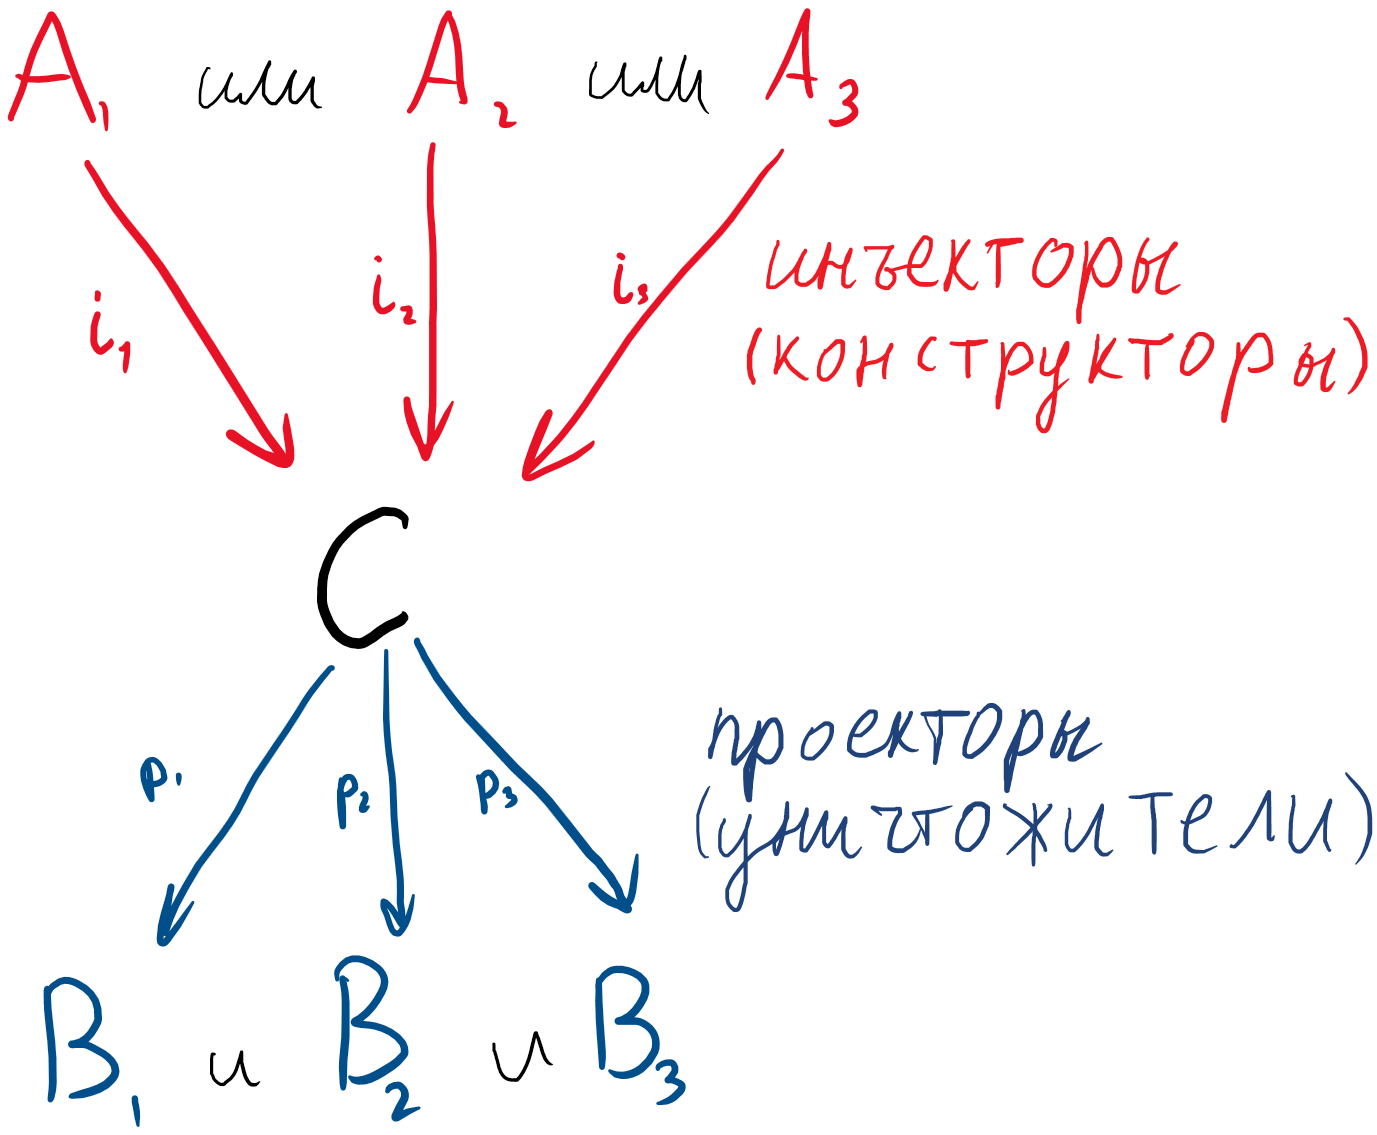 A₁ или A₂ или A₃
i₁ i₂ i₃
инъекторы
(конструкторы)
C
p₁ p₂ p₃
проекторы
(уничтожители)
B₁ и B₂ и B₃